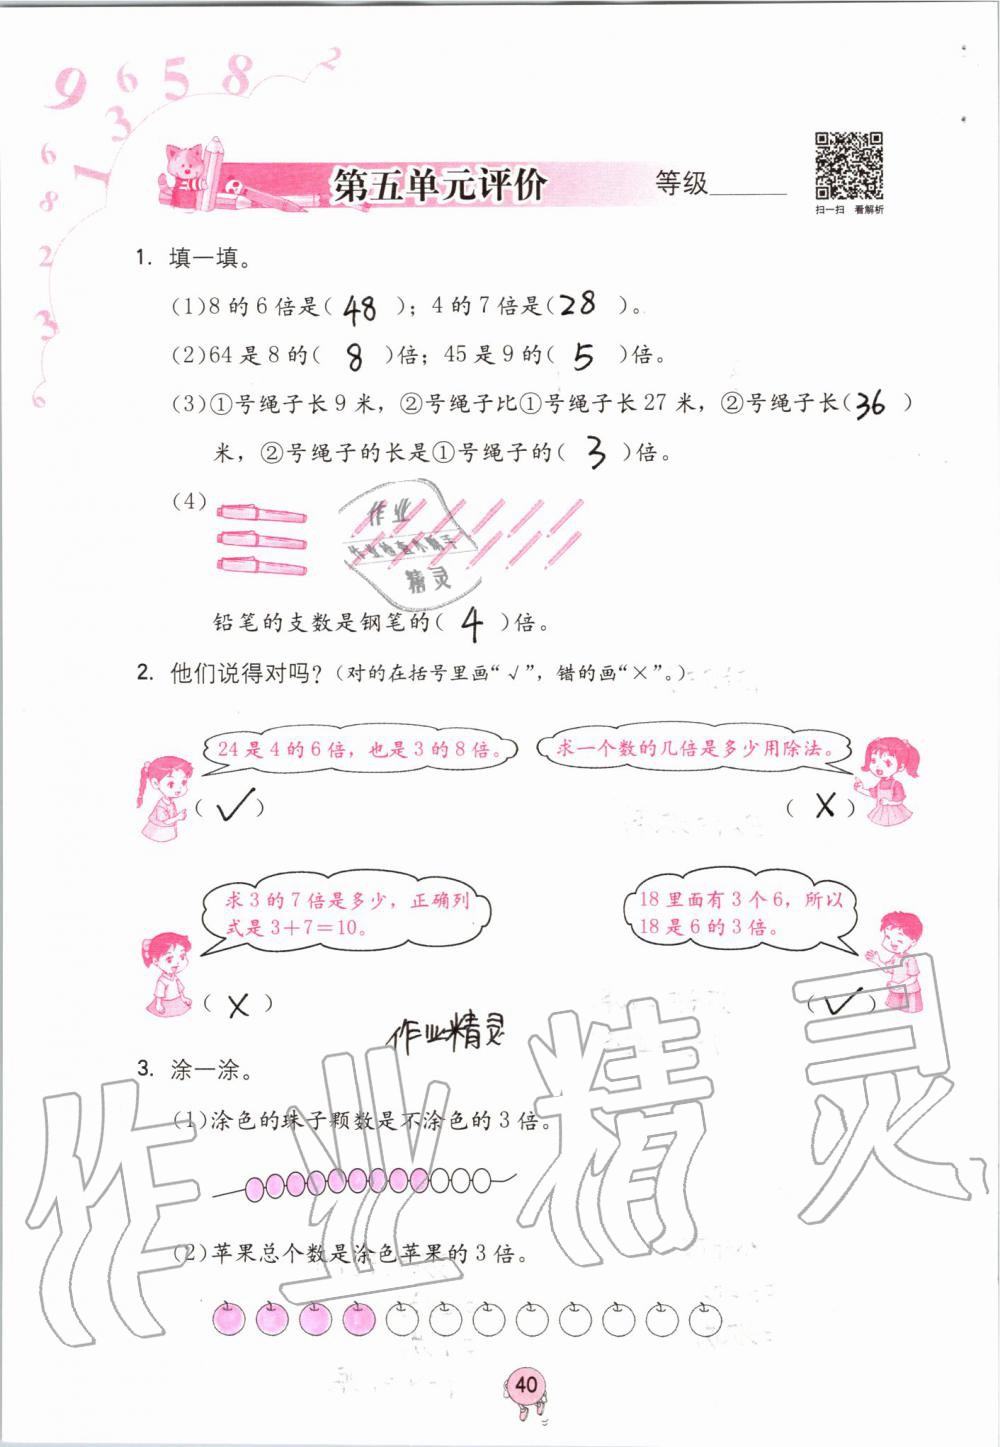 9 6 5 8 2
1 3
6
8
2
3
6
第五单元评价
等级______
扫一扫 看解析
1. 填一填。
(1)8的6倍是( 48 )；4的7倍是( 28 )。
(2)64是8的( 8 )倍；45是9的( 5 )倍。
(3)①号绳子长9米，②号绳子比①号绳子长27米，②号绳子长( 36 )
米，②号绳子的长是①号绳子的( 3 )倍。
(4)
作业
作业检查小帮手
精灵
铅笔的支数是钢笔的( 4 )倍。
2. 他们说得对吗？(对的在括号里画“√”，错的画“×”。)
24是4的6倍，也是3的8倍。
( ✓ )
求一个数的几倍是多少用除法。
( × )
求3的7倍是多少，正确列
式是3+7=10。
( × )
18里面有3个6，所以
18是6的3倍。
( ✓ )
作业精灵
3. 涂一涂。
(1)涂色的珠子颗数是不涂色的3倍。
(2)苹果总个数是涂色苹果的3倍。
作业精灵
40